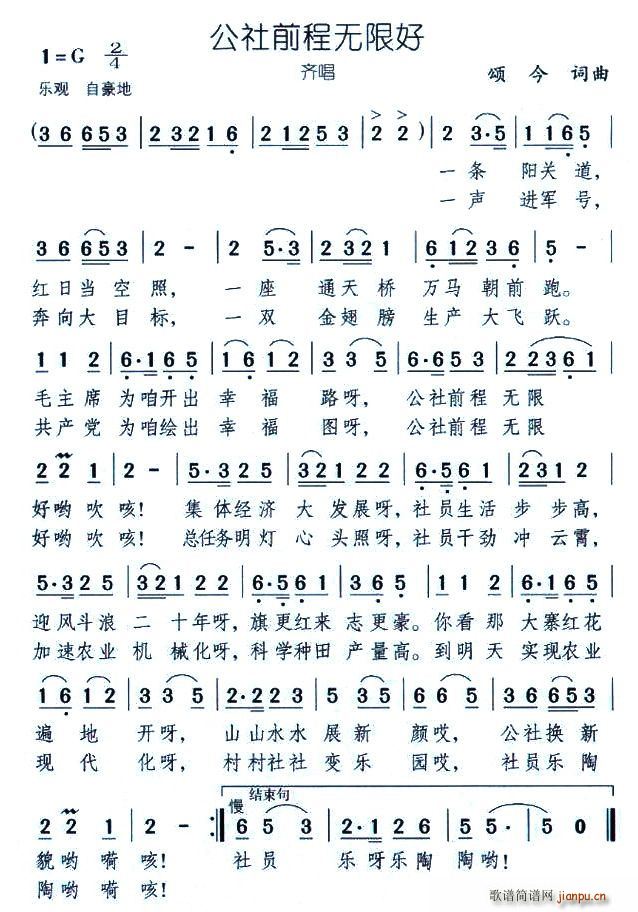 公社前程无限好
1=G 2/4
齐唱
颂今 词曲
乐观 自豪地
(3 6 653 | 2 321 6 | 2 1253 | 2 2 ) | 2 3·5 | 1 165 |
一条 阳关道,
一声 进军号,
3 6 653 | 2 - | 2 5·3 | 2 321 | 6 123 6 | 5 - |
红日当空照, 一座 通天桥 万马朝前跑。
奔向大目标, 一双 金翅膀 生产大飞跃。
1 1 2 | 6·1 65 | 1 6 12 | 3 3 | 6·5 36 | 2 2361 |
毛主席 为咱开出 幸福 路呀, 公社前程 无限
共产党 为咱绘出 幸福 图呀, 公社前程 无限
2 2 1 | 2 - | 5·3 25 | 321 12 | 6·5 61 | 231 2 |
好哟吹咳! 集体经济 大发展呀,社员生活 步步高,
好哟吹咳! 总任务明灯 心头照呀,社员干劲 冲云霄,
5·3 25 | 321 12 | 6·5 61 | 5 65 | 1 1 2 | 6·1 65 |
迎风斗浪 二十年呀,旗更红来 志更豪。你看那 大寨红花
加速农业 机械化呀,科学种田 产量高。到明天 实现农业
1 6 12 | 3 5 | 6·2 23 | 1216 5 | 3 6 653 |
遍地 开呀, 山山水水 展新 颜哎, 公社换新
现代 化呀, 村村社社 变乐 园哎, 社员乐陶
慢 结束句
2 2 1 | 2 - :‖ 6 5 3 | 2·1 26 | 5 5 | 5 0 ‖
貌哟嗬咳! 社员 乐呀乐陶 陶哟!
陶哟嗬咳!
歌谱简谱网
jianpu.cn